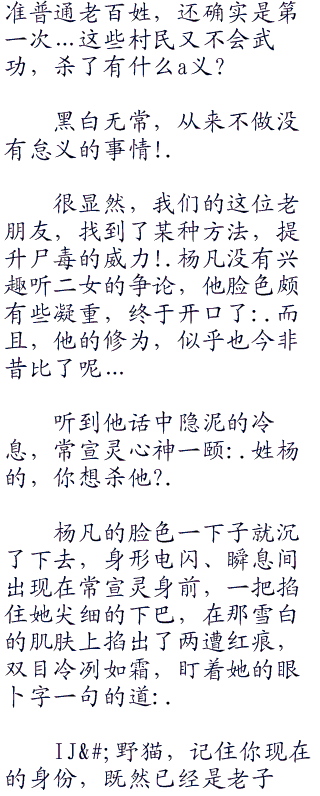 准普通老百姓，还确实是第
一次…这些村民又不会武
功，杀了有什么a义？
黑白无常，从来不做没
有怠义的事情!.
很显然，我们的这位老
朋友，找到了某种方法，提
升尸毒的威力!.杨凡没有兴
趣听二女的争论，他脸色颇
有些凝重，终于开口了:.而
且，他的修为，似乎也今非
昔比了呢…
听到他话中隐泥的冷
息，常宣灵心神一颐:.姓杨
的，你想杀他?.
杨凡的脸色一下子就沉
了下去，身形电闪、瞬息间
出现在常宣灵身前，一把掐
住她尖细的下巴，在那雪白
的肌肤上掐出了两遭红痕，
双目冷冽如霜，盯着她的眼
卜字一句的道:.
IJ&#;野猫，记住你现在
的身份，既然已经是老子